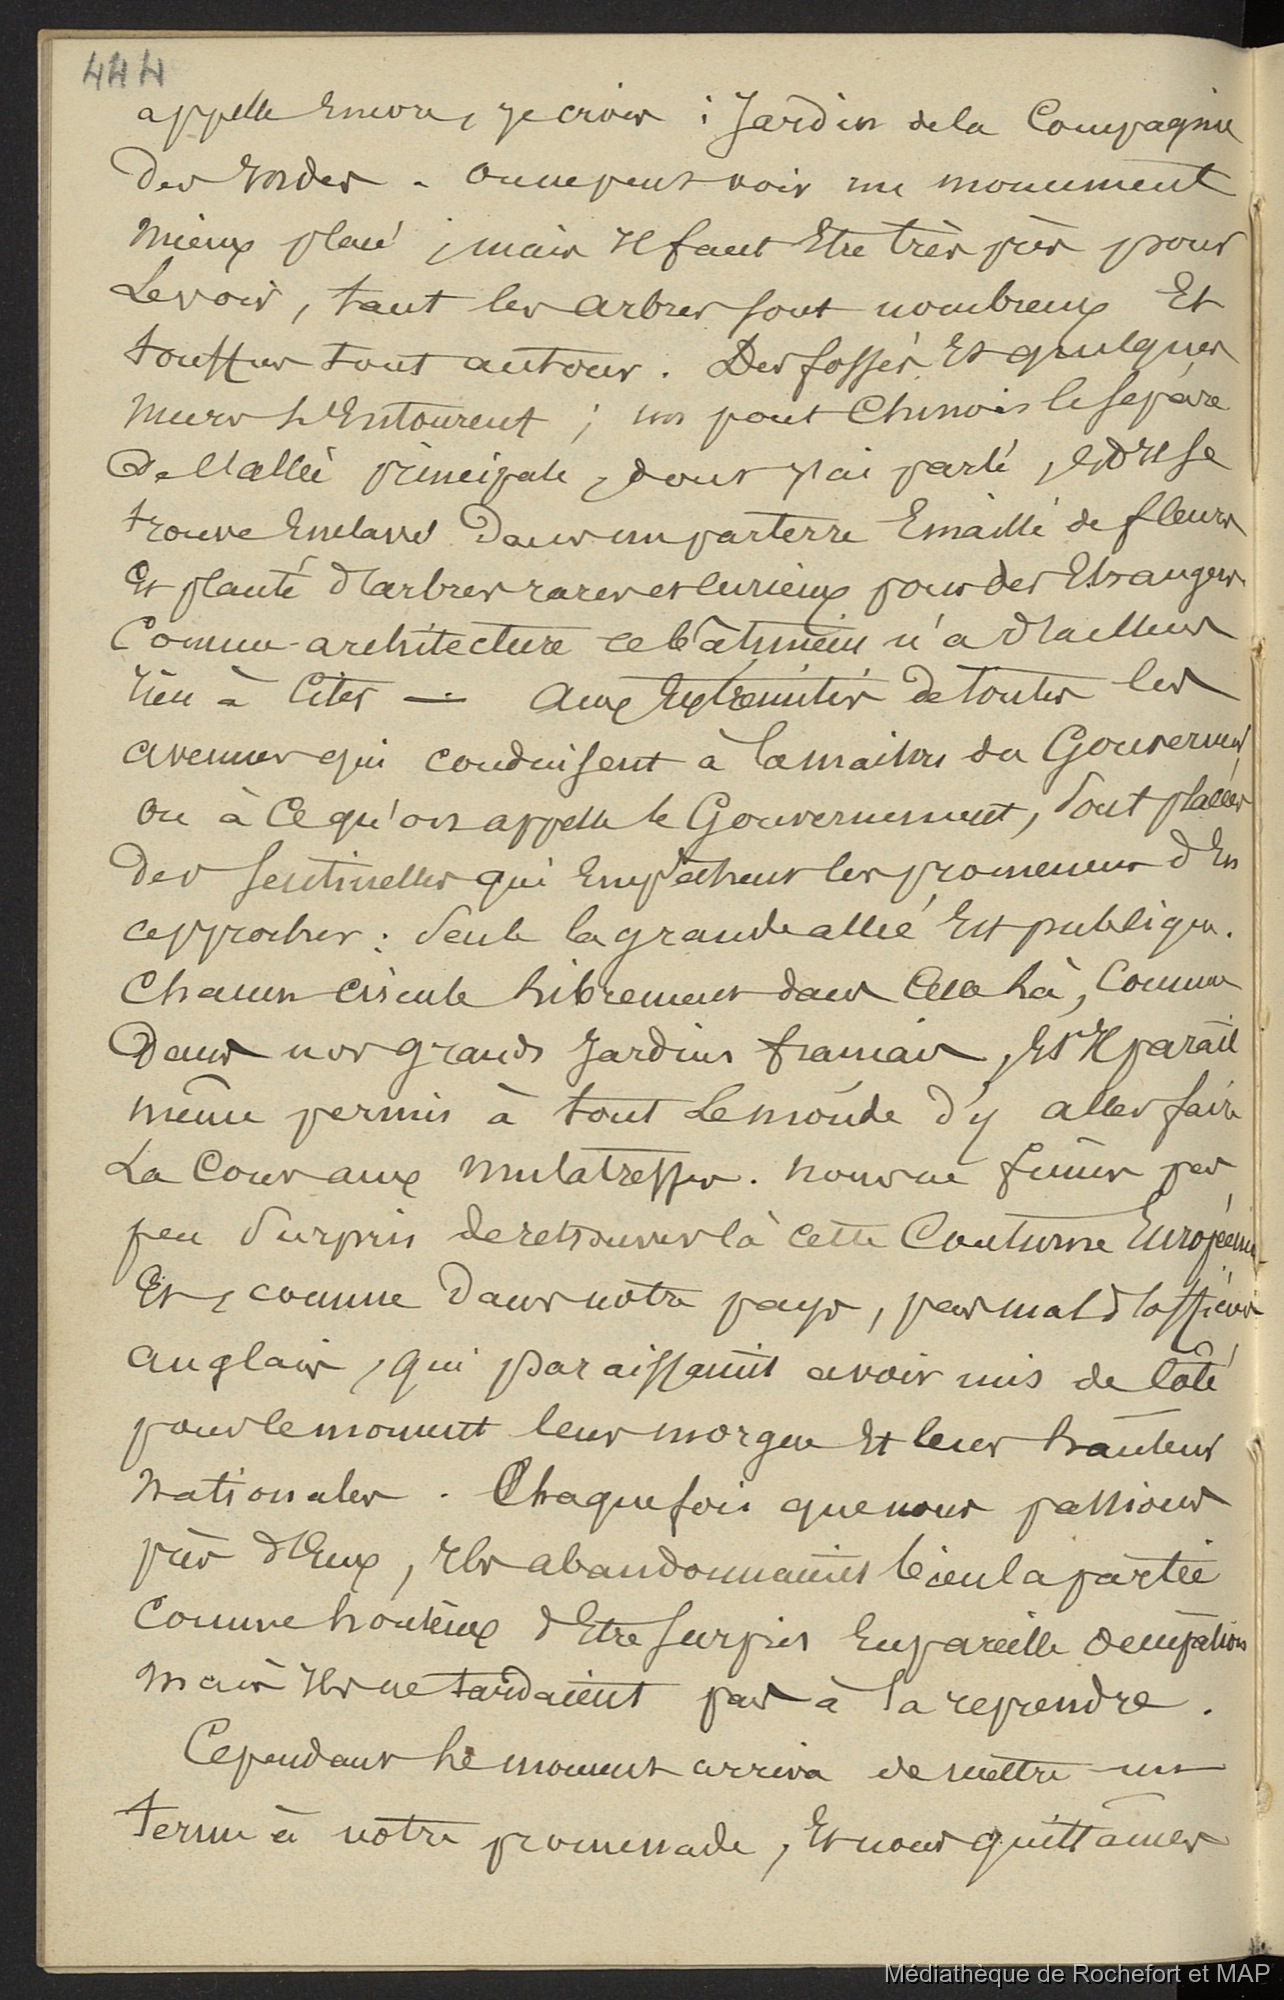 444
appelle encore, je crois : Jardin de la Compagnie
Des Indes. On ne peut voir un monument
mieux placé ; mais il faut Etre très près pour
Le voir, tant les arbres sont nombreux Et
touffus tout autour. Des fossés Et quelques
murs L'Entourent ; un pont Chinois le sépare
De l'allée principale, dont j'ai parlé, et Il se
trouve Enclavé Dans un parterre Emaillé de fleurs
Et planté d'arbres rares et curieux pour des Etrangers.
Comme architecture ce bâtiment n'a d'ailleurs
rien à citer — Aux Extrémités de toutes les
avenues qui conduisent à la maison du Gouverneur
ou à ce qu'on appelle le Gouvernement, sont placées
Des sentinelles qui Empêchent les promeneurs d'En
approcher : seule la grande allée Est publique.
Chacun circule librement dans celle là, comme
Dans nos grands jardins français, Et Il paraît
même permis à tout le monde d'y aller faire
La Cour aux mulatresses. Nous ne fûmes pas
peu surpris de retrouver là cette Coutume Européenne
Et, comme Dans notre pays, pas mal d'officiers
anglais, qui paraissaient avoir mis de côté
pour le moment leur morgue Et leur hauteur
Nationales. Chaque fois que nous passions
près d'Eux, Ils abandonnaient bien la partie
Comme honteux d'Etre surpris En pareille occupation
Mais Ils ne tardaient pas à la reprendre.
Cependant Le moment arriva de mettre un
terme à notre promenade, Et nous quittâmes
Médiathèque de Rochefort et MAP